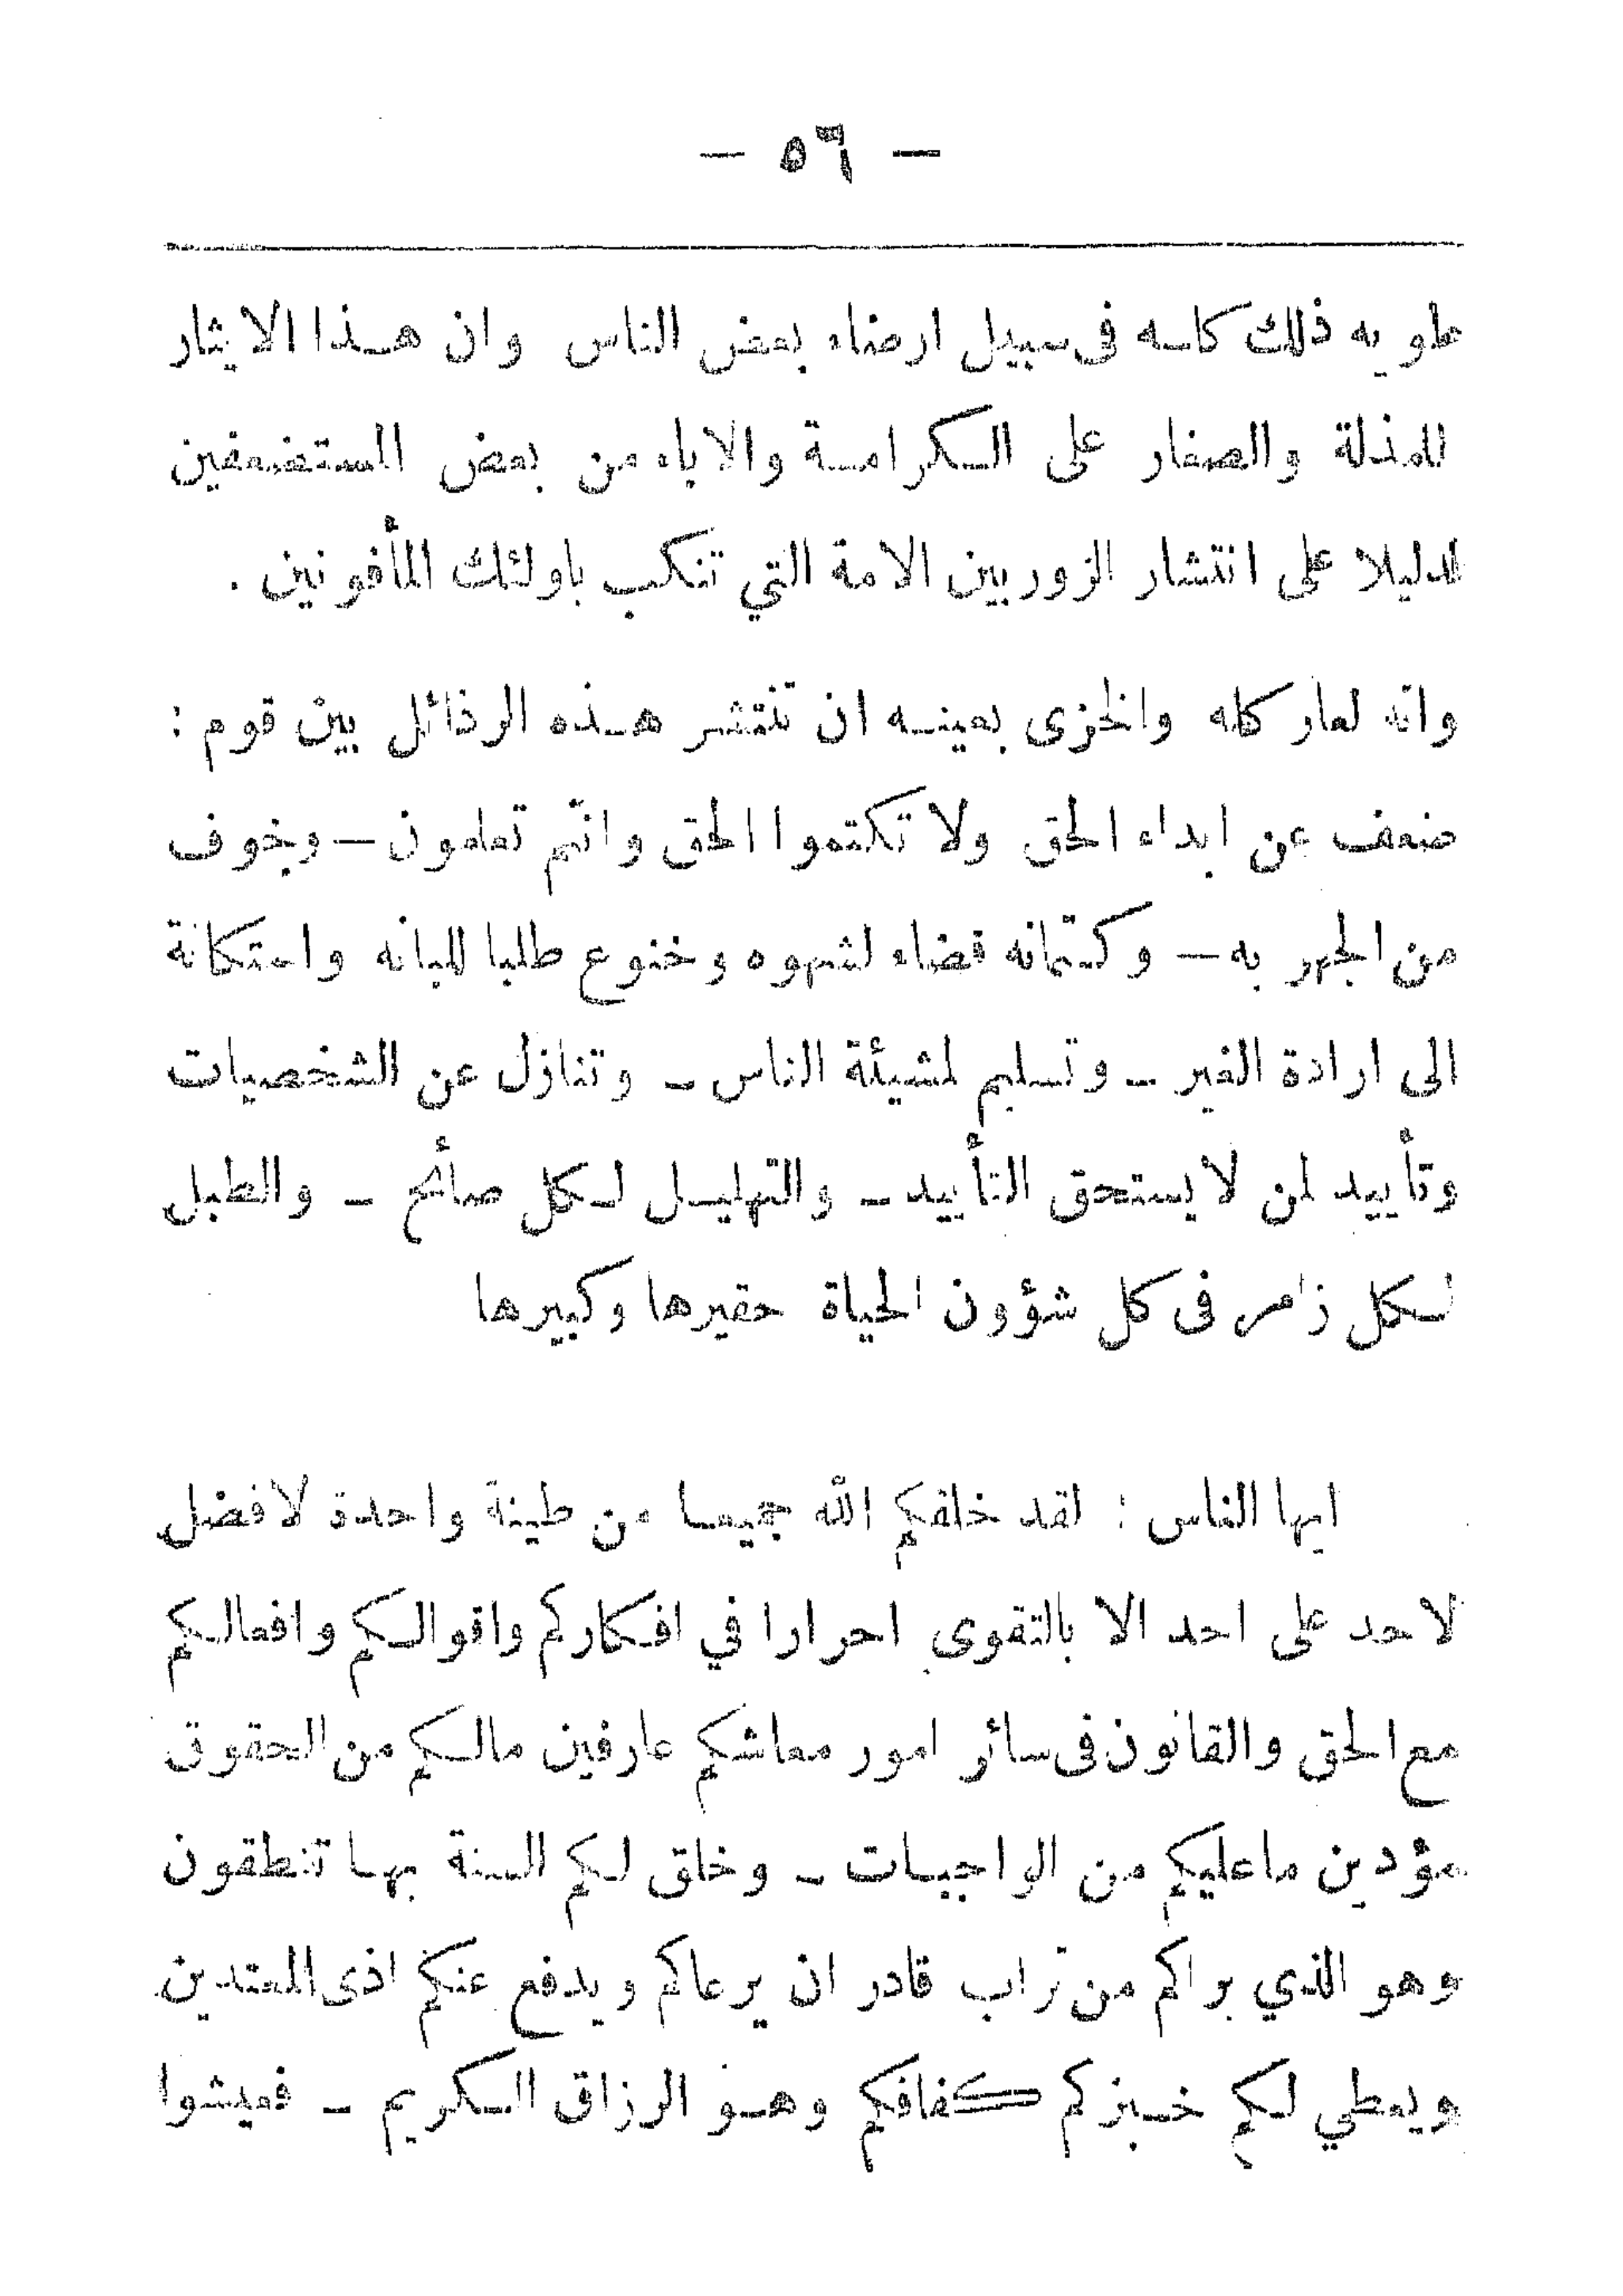 — ٥٦ —
علويه ذلك كله فى سبيل ارضاء بعض الناس وان هذا الايثار
للمذلة والصغار على الكرامة والاباء من بعض المستضعفين
لدليلا على انتشار الزور بين الامة التي تنكب باولئك المأفونين .
وانه لعار كله والخزى بعينه ان تنتشر هذه الرذائل بين قوم :
ضعف عن ابداء الحق ولا تكتموا الحق وانتم تعلمون — وخوف
من الجهر به — وكتمانه قضاء لشهوه وخنوع طلبا للبانه واستكانة
الى ارادة الغير — وتسليم لمشيئة الناس — وتنازل عن الشخصيات
وتأييد لمن لا يستحق التأييد — والتهليل لكل صائح — والطبل
لكل زامر فى كل شؤون الحياة حقيرها وكبيرها
ايها الناس : لقد خلقكم الله جميعا من طينة واحدة لا فضل
لاحد على احد الا بالتقوى احرارا في افكاركم واقوالكم وافعالكم
مع الحق والقانون فى سائر امور معاشكم عارفين مالكم من الحقوق
مؤدين ماعليكم من الواجبات — وخلق لكم السنة بها تنطقون
وهو الذي براكم من تراب قادر ان يرعاكم ويدفع عنكم اذى المعتدين
ويعطي لكم خبزكم كفافكم وهو الرزاق الكريم — فعيشوا